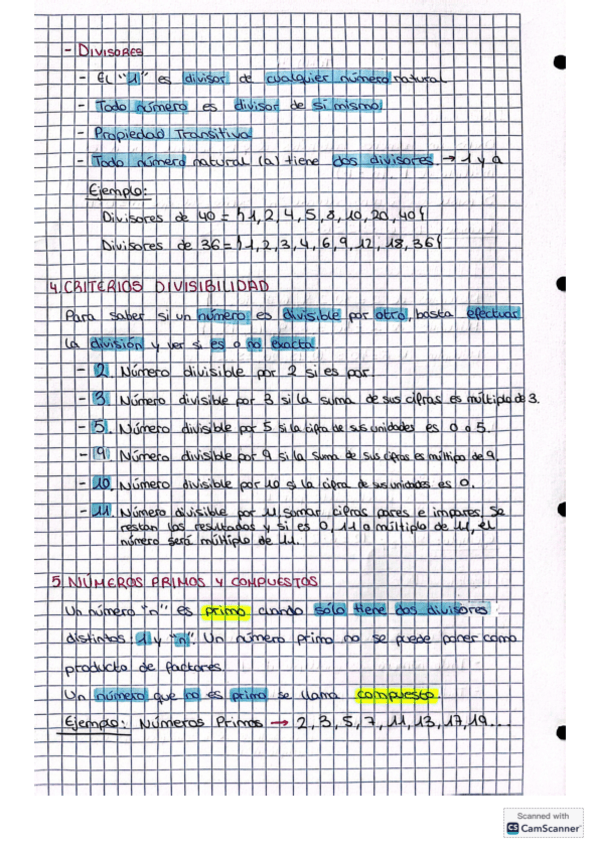 - DIVISORES
- El "1" es divisor de cualquier número natural
- Todo número es divisor de sí mismo
- Propiedad Transitiva
- Todo número natural (a) tiene dos divisores → 1 y a
Ejemplo:
Divisores de 40 = {1, 2, 4, 5, 8, 10, 20, 40}
Divisores de 36 = {1, 2, 3, 4, 6, 9, 12, 18, 36}
4. CRITERIOS DIVISIBILIDAD
Para saber si un número es divisible por otro, basta efectuar
la división y ver si es o no exacta
- 2. Número divisible por 2 si es par.
- 3. Número divisible por 3 si la suma de sus cifras es múltiplo de 3.
- 5. Número divisible por 5 si la cifra de sus unidades es 0 o 5.
- 9. Número divisible por 9 si la suma de sus cifras es múltiplo de 9.
- 10. Número divisible por 10 si la cifra de sus unidades es 0.
- 11. Número divisible por 11, sumar cifras pares e impares, se
restan los resultados y si es 0, 11 o múltiplo de 11, el
número será múltiplo de 11.
5. NÚMEROS PRIMOS Y COMPUESTOS
Un número "n" es primo cuando sólo tiene dos divisores
distintos: 1 y "n". Un número primo no se puede poner como
producto de factores.
Un número que no es primo se llama compuesto.
Ejemplo: Números Primos → 2, 3, 5, 7, 11, 13, 17, 19...
Scanned with
CS CamScanner